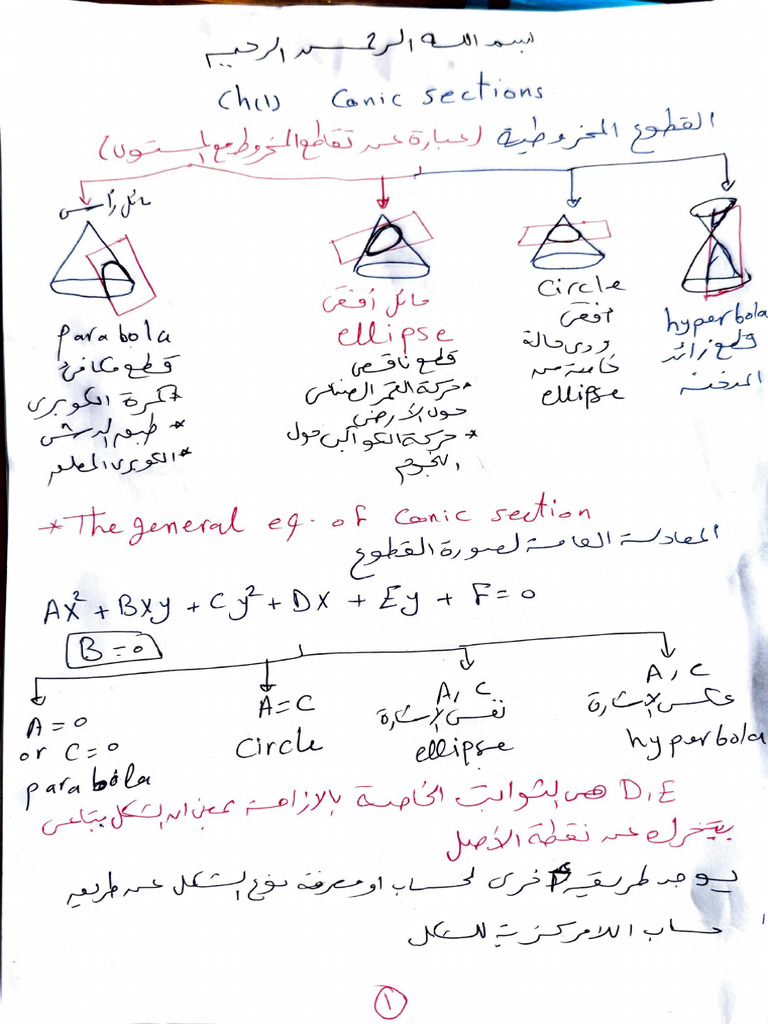 بسم الله الرحمن الرحيم
Ch(1) Conic sections
القطوع المخروطية (عبارة عن تقاطع المخروط مع المستوى)
مائل رأسى
parabola
قطع مكافئ
* كرة الكوبرى
* طبق الدش
* الكوبرى المعلق
مائل أفقى
ellipse
قطع ناقص
* حركة القمر الصناعى
حول الأرض
* حركة الكواكب حول
النجوم
Circle
أفقى
ودى حالة
خاصة من
ellipse
hyperbola
قطع زائد
المدخنة
* The general eq. of Conic section
المعادلة العامة لصورة القطوع
Ax² + Bxy + Cy² + Dx + Ey + F = 0
B = 0
A = 0
or C = 0
parabola
A = C
Circle
A, C
نفس الإشارة
ellipse
A, C
عكس الإشارة
hyperbola
D, E هى الثوابت الخاصة بالازاحة بمعنى ان الشكل بتاعى
بيتحرك عن نقطة الأصل
يوجد طريقة أخرى لحساب او معرفة نوع الشكل عن طريق
حساب اللامركزية للشكل
١